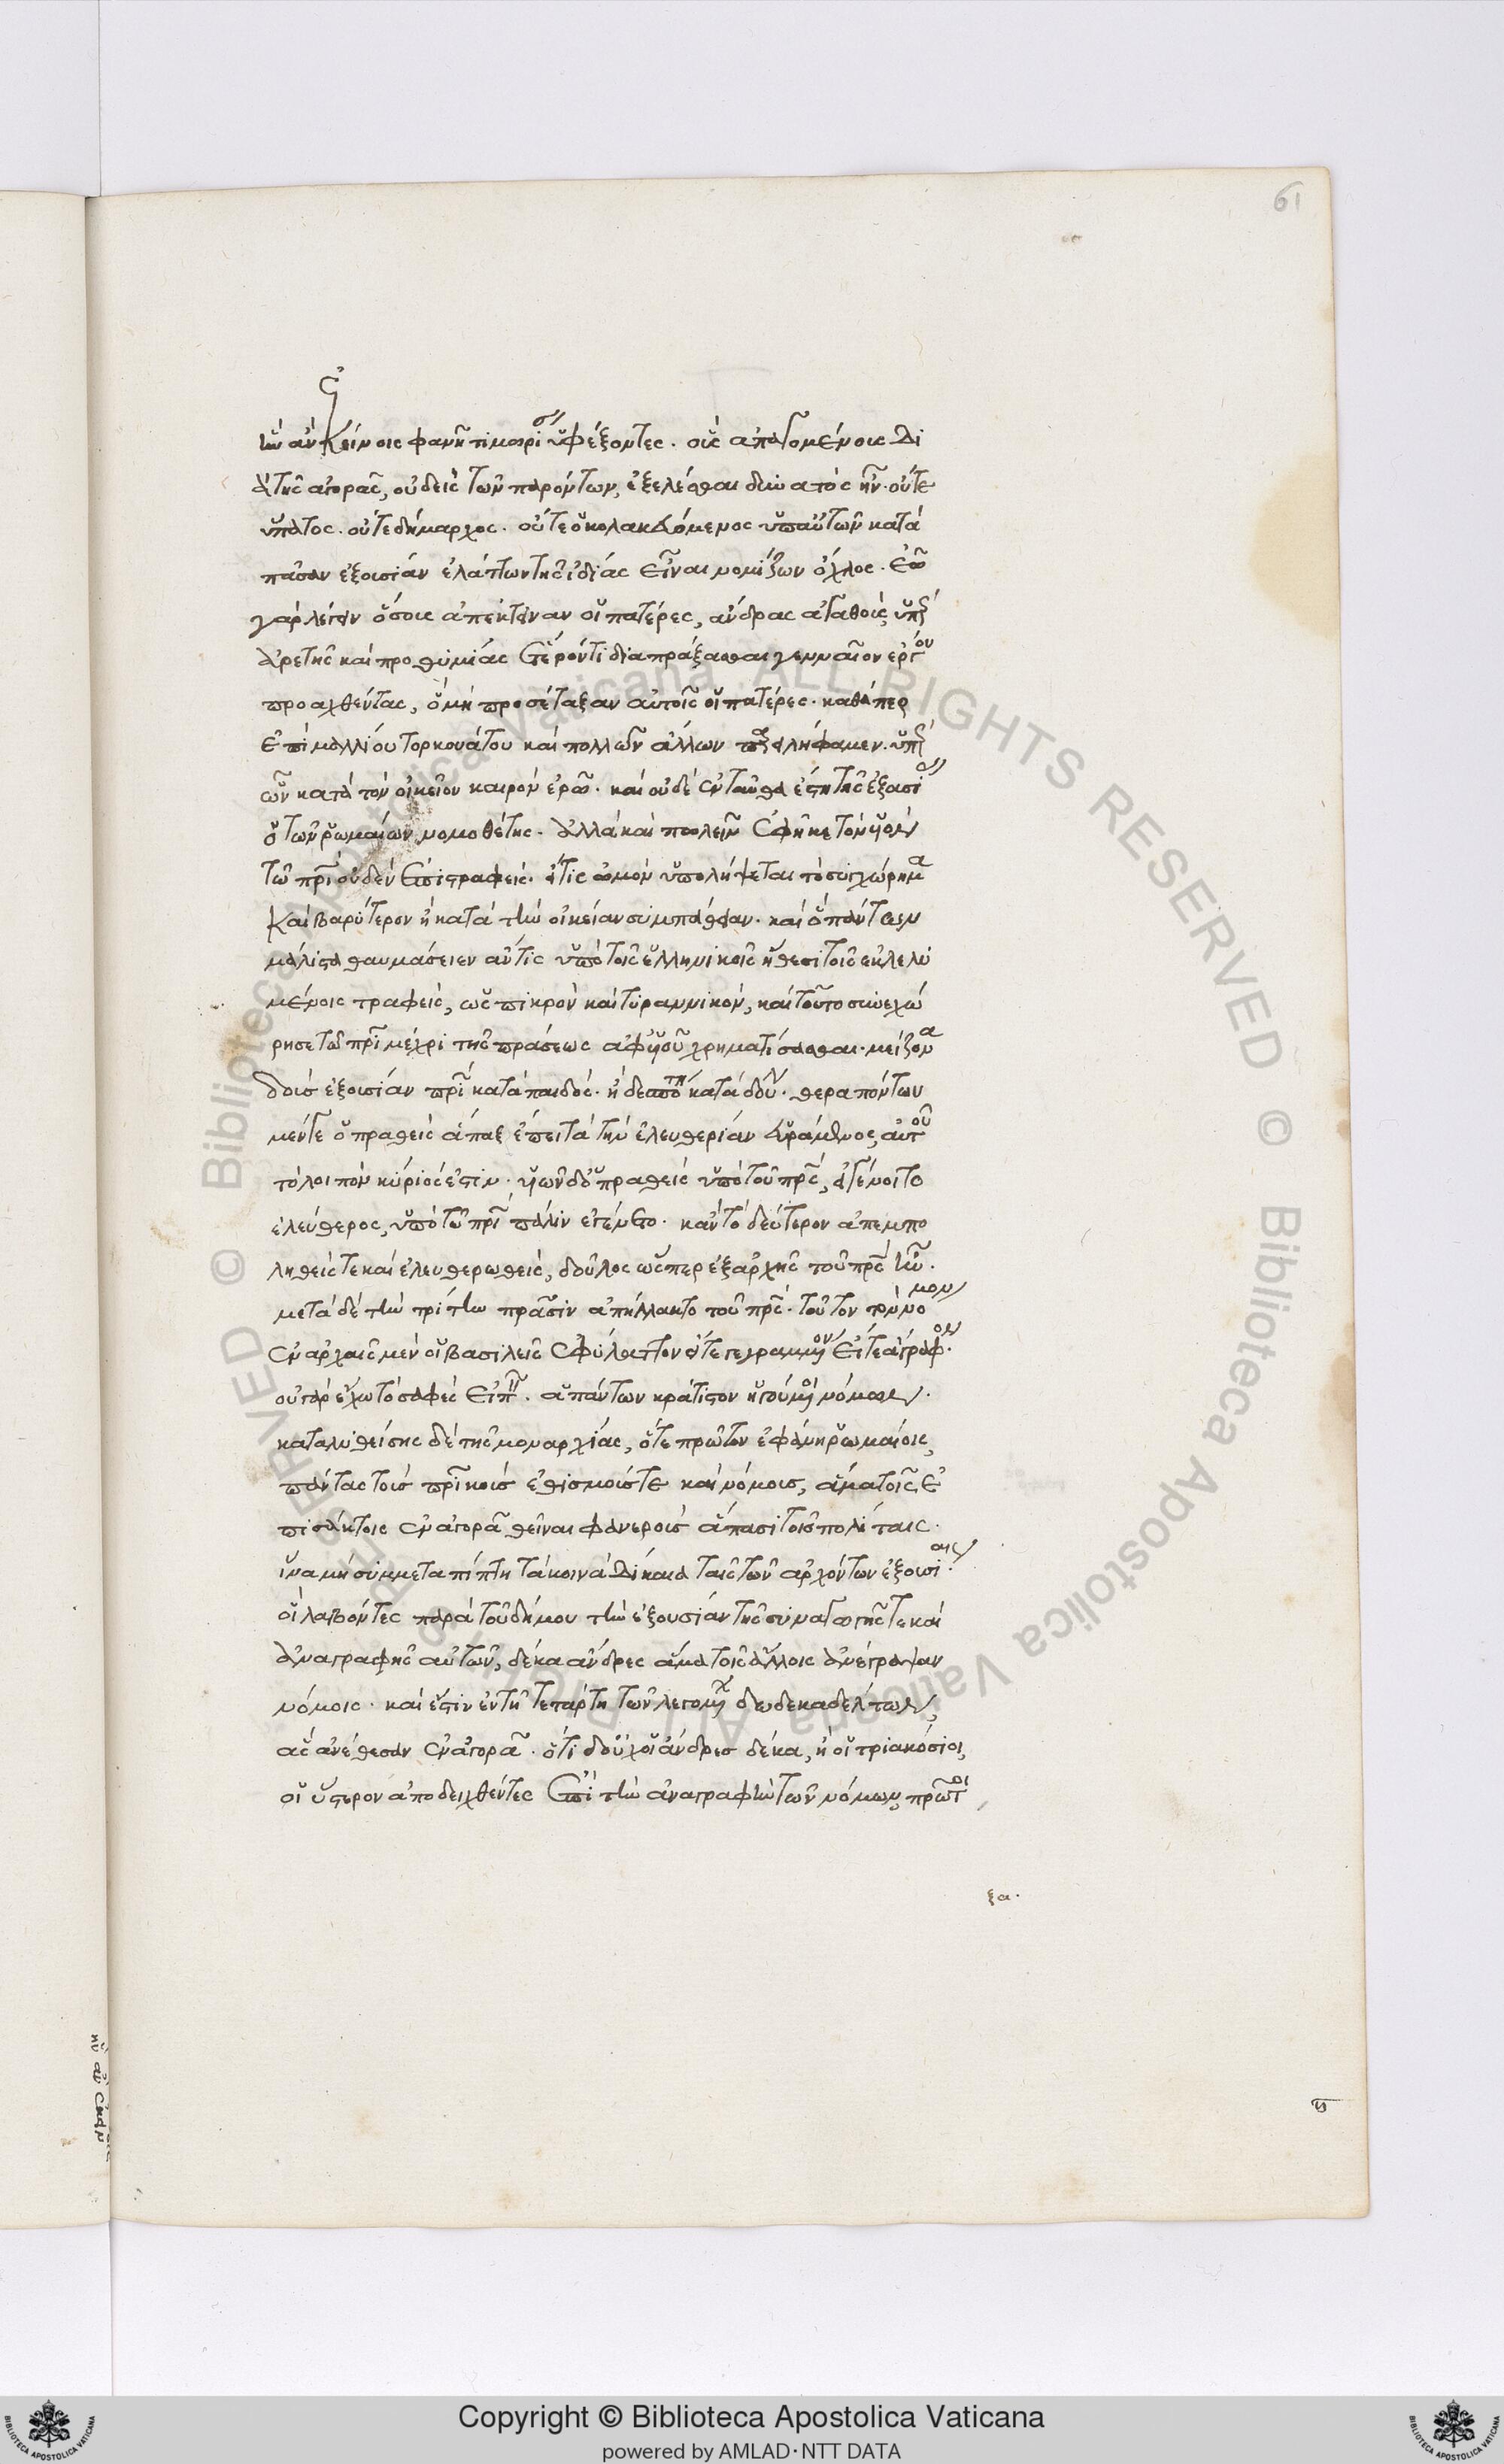 61
ἣν ἂν ἐκείνοις φανῇ τιμωρίαν ὑφέξοντες. οὓς ἀπαγομένους δι
ὰ τῆς ἀγορᾶς, οὐδεὶς τῶν παρόντων, ἐξελέσθαι δυνατὸς ἦν. οὔτε
ὕπατος. οὔτε δήμαρχος. οὔτε ὁ κολακευόμενος ὑπ αὐτῶν κατὰ
πᾶσαν ἐξουσίαν ἐλάττων τῆς ἰδίας εἶναι νομίζων ὄχλος. ἐῶ
γὰρ λέγειν ὅσους ἀπέκτειναν οἱ πατέρες, ἄνδρας ἀγαθοὺς ὑπὲρ
ἀρετῆς καὶ προθυμίας ἕτερόν τι διαπράξασθαι γενναῖον ἔργον
προαχθέντας, ὃ μὴ προσέταξαν αὐτοῖς οἱ πατέρες. καθάπερ
ἐπὶ μαλλίου τορκουάτου καὶ πολλῶν ἄλλων παρειλήφαμεν. ὑπὲρ
ὧν κατὰ τὸν οἰκεῖον καιρὸν ἐρῶ. καὶ οὐδὲ ἐνταῦθα ἔστη τῆς ἐξουσίας
ὁ τῶν ῥωμαίων νομοθέτης. ἀλλὰ καὶ πωλεῖν ἐφῆκε τὸν υἱὸν
τῷ πρὶ οὐδὲν ἐπιστραφεὶς. εἴ τις ὠμὸν ὑπολήψεται τὸ συγχώρημα
καὶ βαρύτερον ἢ κατὰ τὴν οἰκείαν συμπάθειαν. καὶ ὃ πάντων
μάλιστα θαυμάσειεν ἄν τις ὑπὸ τοῖς ἑλληνικοῖς ἤθεσι τοῖς ἐκλελυ
μένοις τραφεὶς, ὡς πικρὸν καὶ τυραννικὸν, καὶ τοῦτο συνεχώ
ρησε τῷ πρὶ μέχρι τῆς πράσεως ἀφ υἱοῦ χρηματίσασθαι. μείζονα
δοὺς ἐξουσίαν πρὶ κατὰ παιδὸς. ἢ δεσπότῃ κατὰ δούλων. θεραπόντων
μέν γε ὁ πραθεὶς ἅπαξ ἔπειτα τὴν ἐλευθερίαν εὑράμενος, αὑτοῦ
τὸ λοιπὸν κύριός ἐστιν. υἱῶν δ ὁ πραθεὶς ὑπὸ τοῦ πρς, εἰ γένοιτο
ἐλεύθερος, ὑπὸ τῷ πρὶ πάλιν ἐγένετο. κἂν τὸ δεύτερον ἀπεμπο
ληθείς τε καὶ ἐλευθερωθεὶς, δοῦλος ὥσπερ ἐξ ἀρχῆς τοῦ πρς ἦν.
μετὰ δὲ τὴν τρίτην πρᾶσιν ἀπήλλακτο τοῦ πρς. τοῦτον τὸν νόμον
ἐν ἀρχαῖς μὲν οἱ βασιλεῖς ἐφύλαττον εἴτε γεγραμμένον εἴτε ἄγραφον.
οὐ γὰρ ἔχω τὸ σαφὲς εἰπεῖν. ἁπάντων κράτιστον ἡγούμενοι νόμων.
καταλυθείσης δὲ τῆς μοναρχίας, ὅτε πρῶτον ἐφάνη ῥωμαίοις
πάντας τοὺς πρικοὺς ἐθισμούς τε καὶ νόμους, ἅμα τοῖς ἐ
πισάκτοις ἐν ἀγορᾷ θεῖναι φανεροὺς ἅπασι τοῖς πολίταις.
ἵνα μὴ συμμεταπίπτῃ τὰ κοινὰ δίκαια ταῖς τῶν ἀρχόντων ἐξουσίαις.
οἱ λαβόντες παρὰ τοῦ δήμου τὴν ἐξουσίαν τῆς συναγωγῆς τε καὶ
ἀναγραφῆς αὐτῶν, δέκα ἄνδρες ἅμα τοῖς ἄλλοις ἀνέγραψαν
νόμοις. καὶ ἔστιν ἐν τῇ τετάρτῃ τῶν λεγομένων δώδεκα δέλτων,
ἃς ἀνέθεσαν ἐν ἀγορᾷ. ὅτι δ οὐχ οἱ ἄνδρες δέκα, ἢ οἱ τριακόσιοι,
οἱ ὕστερον ἀποδειχθέντες ἐπὶ τὴν ἀναγραφὴν τῶν νόμων, πρῶτοι
ξα.
Copyright © Biblioteca Apostolica Vaticana
powered by AMLAD·NTT DATA